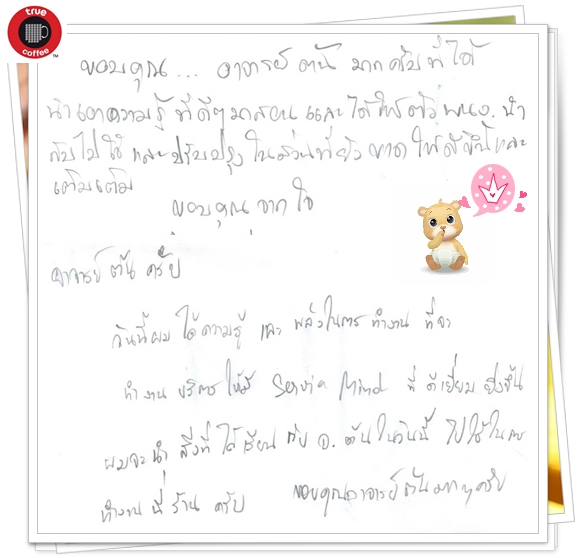 true
coffee
TM
ขอบคุณ... อาจารย์ ตนั มากครับที่ได้
นำเอาความรู้ ที่ดีๆมาสอน และได้ให้ พนง. นำ
กลับไปใช้ และปรับปรุง ในส่วนที่ยังขาด ให้ดีขึ้นและ
เติมเต็ม
ขอบคุณจากใจ
อาจารย์ ตัน ครับ
วันนี้ผม ได้ความรู้ และ พลังในการ ทำงาน ที่จะ
ทำงาน บริการ ให้มี Service Mind ที่ ดีเยี่ยม ยิ่งขึ้น
ผมจะนำ สิ่งที่ ได้เรียน กับ อ. ตันในวันนี้ ไปใช้ในการ
ทำงาน ที่ ร้าน ครับ ขอบคุณอาจารย์ตันมากๆครับ